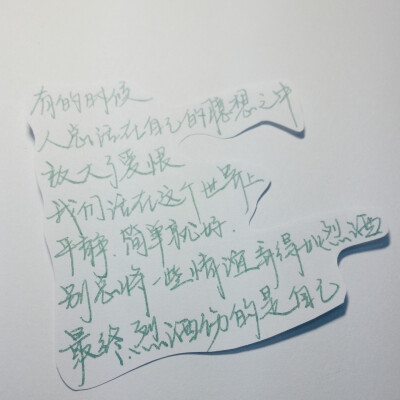 有的时候
人总活在自己的臆想之中
放大了爱恨
我们活在这个世界上
平静.简单就好.
别总将一些情谊看得比烈酒
最终烈酒伤的是自己